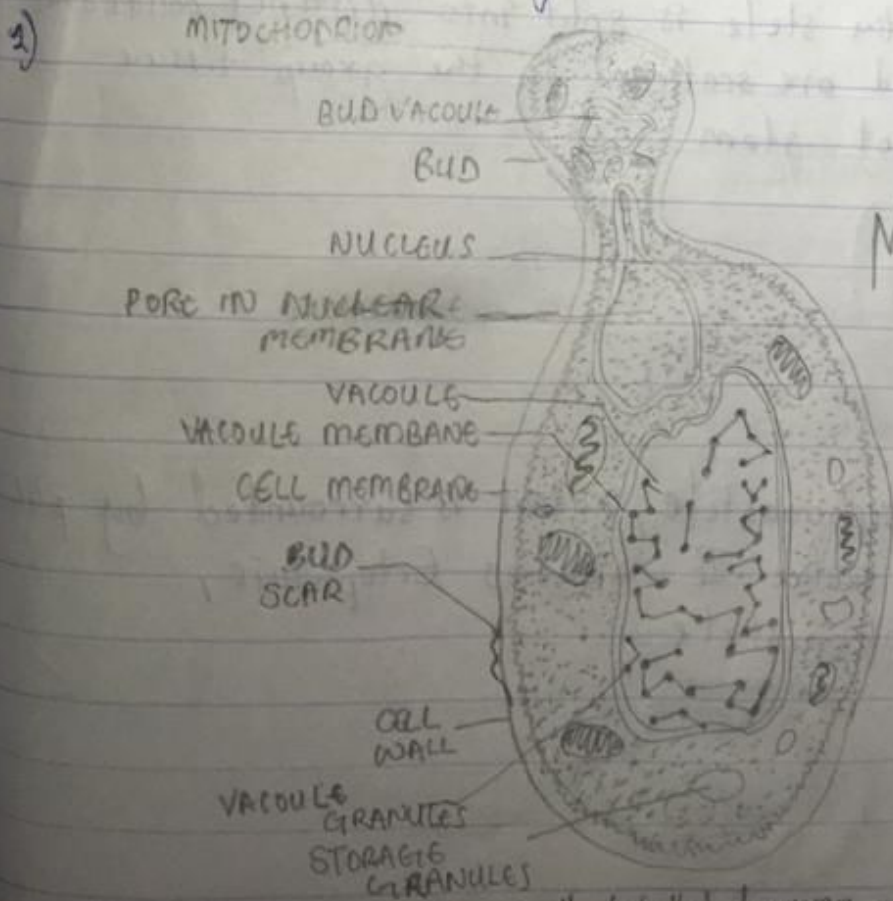 1)
MITOCHODRION
BUD VACOULE
BUD
NUCLEUS
PORE IN NUCLEAR
MEMBRANE
VACOULE
VACOULE MEMBANE
CELL MEMBRANE
BUD
SCAR
CELL
WALL
VACOULE
GRANULES
STORAGE
GRANULES